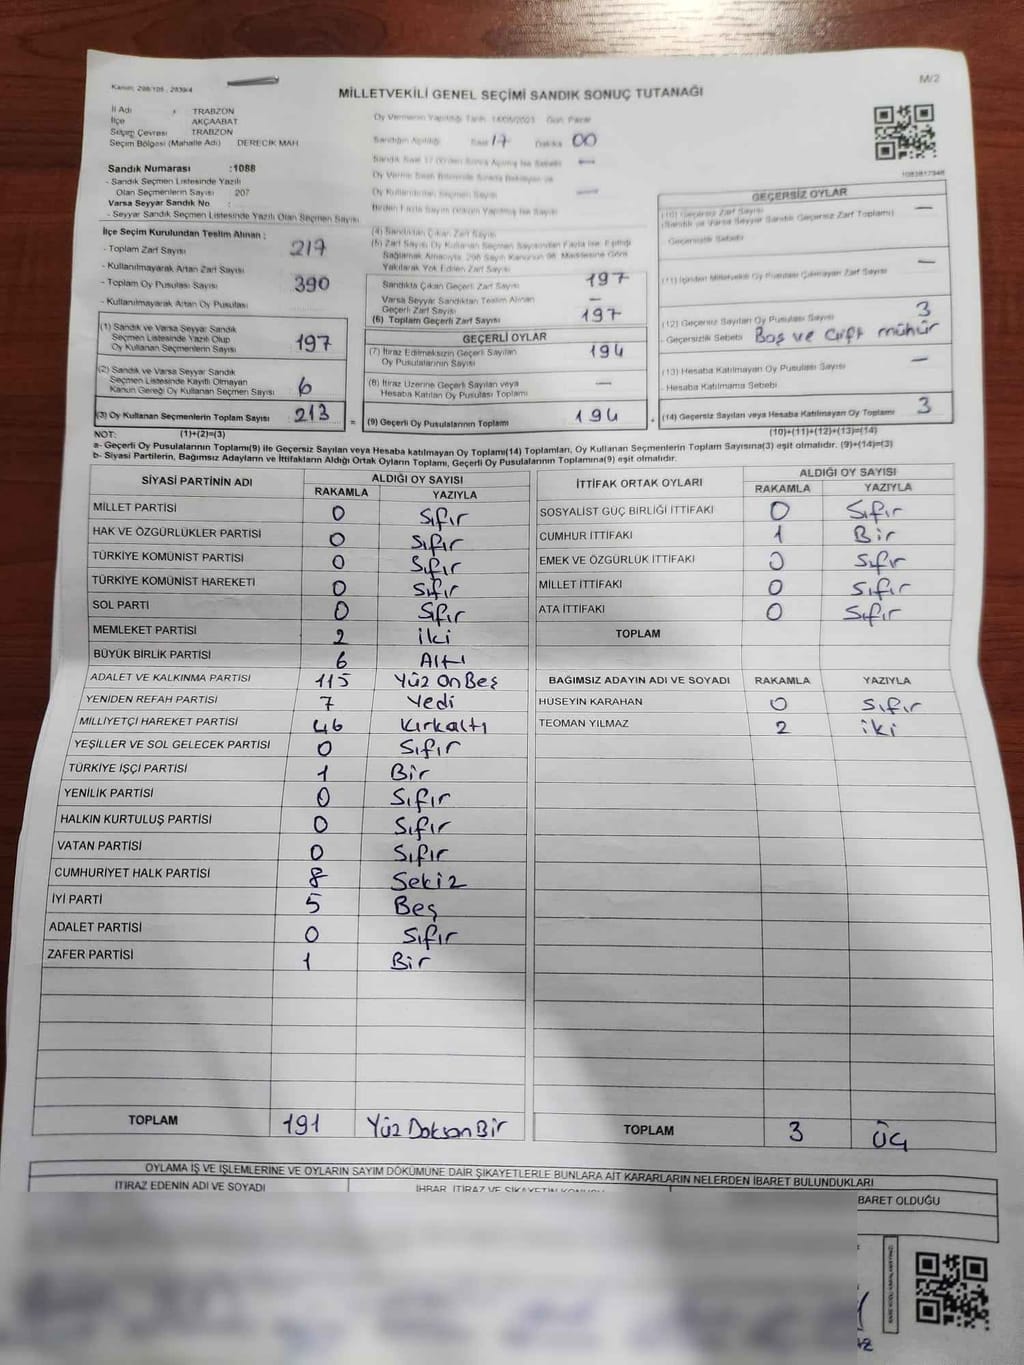 Kanun: 298/105 , 2839/4
M/2
MİLLETVEKİLİ GENEL SEÇİMİ SANDIK SONUÇ TUTANAĞI
İl Adı : TRABZON
İlçe AKÇAABAT
Seçim Çevresi TRABZON
Seçim Bölgesi (Mahalle Adı) DERECİK MAH
Sandık Numarası :1088
- Sandık Seçmen Listesinde Yazılı
Olan Seçmenlerin Sayısı 207
Varsa Seyyar Sandık No :
- Seyyar Sandık Seçmen Listesinde Yazılı Olan Seçmen Sayısı
Oy Vermenin Yapıldığı Tarih 14/05/2023 Gün Pazar
Sandığın Açıldığı Saat 17 Dakika 00
Oy Kullandırılan Seçmen Sayısı
İlçe Seçim Kurulundan Teslim Alınan :
- Toplam Zarf Sayısı 217
- Kullanılmayarak Artan Zarf Sayısı
- Toplam Oy Pusulası Sayısı 390
- Kullanılmayarak Artan Oy Pusulası
(1) Sandık ve Varsa Seyyar Sandık
Seçmen Listesinde Yazılı Olup
Oy Kullanan Seçmenlerin Sayısı 197
(2) Sandık ve Varsa Seyyar Sandık
Seçmen Listesinde Kayıtlı Olmayan
Kanun Gereği Oy Kullanan Seçmen Sayısı 6
(3) Oy Kullanan Seçmenlerin Toplam Sayısı 213
(4) Sandıktan Çıkan Zarf Sayısı
(5) Zarf Sayısı Oy Kullanan Seçmen Sayısından Fazla İse, Eşitliği
Sağlamak Amacıyla, 298 Sayılı Kanunun 98. Maddesine Göre
Yakılarak Yok Edilen Zarf Sayısı
Sandıkta Çıkan Geçerli Zarf Sayısı 197
Varsa Seyyar Sandıktan Teslim Alınan
Geçerli Zarf Sayısı —
(6) Toplam Geçerli Zarf Sayısı 197
GEÇERLİ OYLAR
(7) İtiraz Edilmeksizin Geçerli Sayılan
Oy Pusulalarının Sayısı 194
(8) İtiraz Üzerine Geçerli Sayılan veya
Hesaba Katılan Oy Pusulası Toplamı —
= (9) Geçerli Oy Pusulalarının Toplamı 194
GEÇERSİZ OYLAR
(10) Geçersiz Zarf Sayısı —
(Sandık ve Varsa Seyyar Sandık Geçersiz Zarf Toplamı)
Geçersizlik Sebebi
(11) İçinden Milletvekili Oy Pusulası Çıkmayan Zarf Sayısı —
(12) Geçersiz Sayılan Oy Pusulası Sayısı 3
- Geçersizlik Sebebi Boş ve Çift mühür
(13) Hesaba Katılmayan Oy Pusulası Sayısı —
- Hesaba Katılmama Sebebi
(14) Geçersiz Sayılan veya Hesaba Katılmayan Oy Toplamı 3
NOT: (1)+(2)=(3)
(10)+(11)+(12)+(13)=(14)
a- Geçerli Oy Pusulalarının Toplamı(9) ile Geçersiz Sayılan veya Hesaba katılmayan Oy Toplamı(14) Toplamları, Oy Kullanan Seçmenlerin Toplam Sayısına(3) eşit olmalıdır. (9)+(14)=(3)
b- Siyasi Partilerin, Bağımsız Adayların ve İttifakların Aldığı Ortak Oyların Toplamı, Geçerli Oy Pusulalarının Toplamına(9) eşit olmalıdır.
SİYASİ PARTİNİN ADI ALDIĞI OY SAYISI
RAKAMLA YAZIYLA
MİLLET PARTİSİ 0 Sıfır
HAK VE ÖZGÜRLÜKLER PARTİSİ 0 Sıfır
TÜRKİYE KOMÜNİST PARTİSİ 0 Sıfır
TÜRKİYE KOMÜNİST HAREKETİ 0 Sıfır
SOL PARTİ 0 Sıfır
MEMLEKET PARTİSİ 2 iki
BÜYÜK BİRLİK PARTİSİ 6 Altı
ADALET VE KALKINMA PARTİSİ 115 Yüz On Beş
YENİDEN REFAH PARTİSİ 7 Yedi
MİLLİYETÇİ HAREKET PARTİSİ 46 Kırkaltı
YEŞİLLER VE SOL GELECEK PARTİSİ 0 Sıfır
TÜRKİYE İŞÇİ PARTİSİ 1 Bir
YENİLİK PARTİSİ 0 Sıfır
HALKIN KURTULUŞ PARTİSİ 0 Sıfır
VATAN PARTİSİ 0 Sıfır
CUMHURİYET HALK PARTİSİ 8 Sekiz
İYİ PARTİ 5 Beş
ADALET PARTİSİ 0 Sıfır
ZAFER PARTİSİ 1 Bir
TOPLAM 191 Yüz Doksan Bir
İTTİFAK ORTAK OYLARI ALDIĞI OY SAYISI
RAKAMLA YAZIYLA
SOSYALİST GÜÇ BİRLİĞİ İTTİFAKI 0 Sıfır
CUMHUR İTTİFAKI 1 Bir
EMEK VE ÖZGÜRLÜK İTTİFAKI 0 Sıfır
MİLLET İTTİFAKI 0 Sıfır
ATA İTTİFAKI 0 Sıfır
TOPLAM
BAĞIMSIZ ADAYIN ADI VE SOYADI RAKAMLA YAZIYLA
HÜSEYİN KARAHAN 0 Sıfır
TEOMAN YILMAZ 2 iki
TOPLAM 3 Üç
OYLAMA İŞ VE İŞLEMLERİNE VE OYLARIN SAYIM DÖKÜMÜNE DAİR ŞİKAYETLERLE BUNLARA AİT KARARLARIN NELERDEN İBARET BULUNDUKLARI
İTİRAZ EDENİN ADI VE SOYADI İHBAR, İTİRAZ VE ŞİKAYETİN KONUSU
BARET OLDUĞU